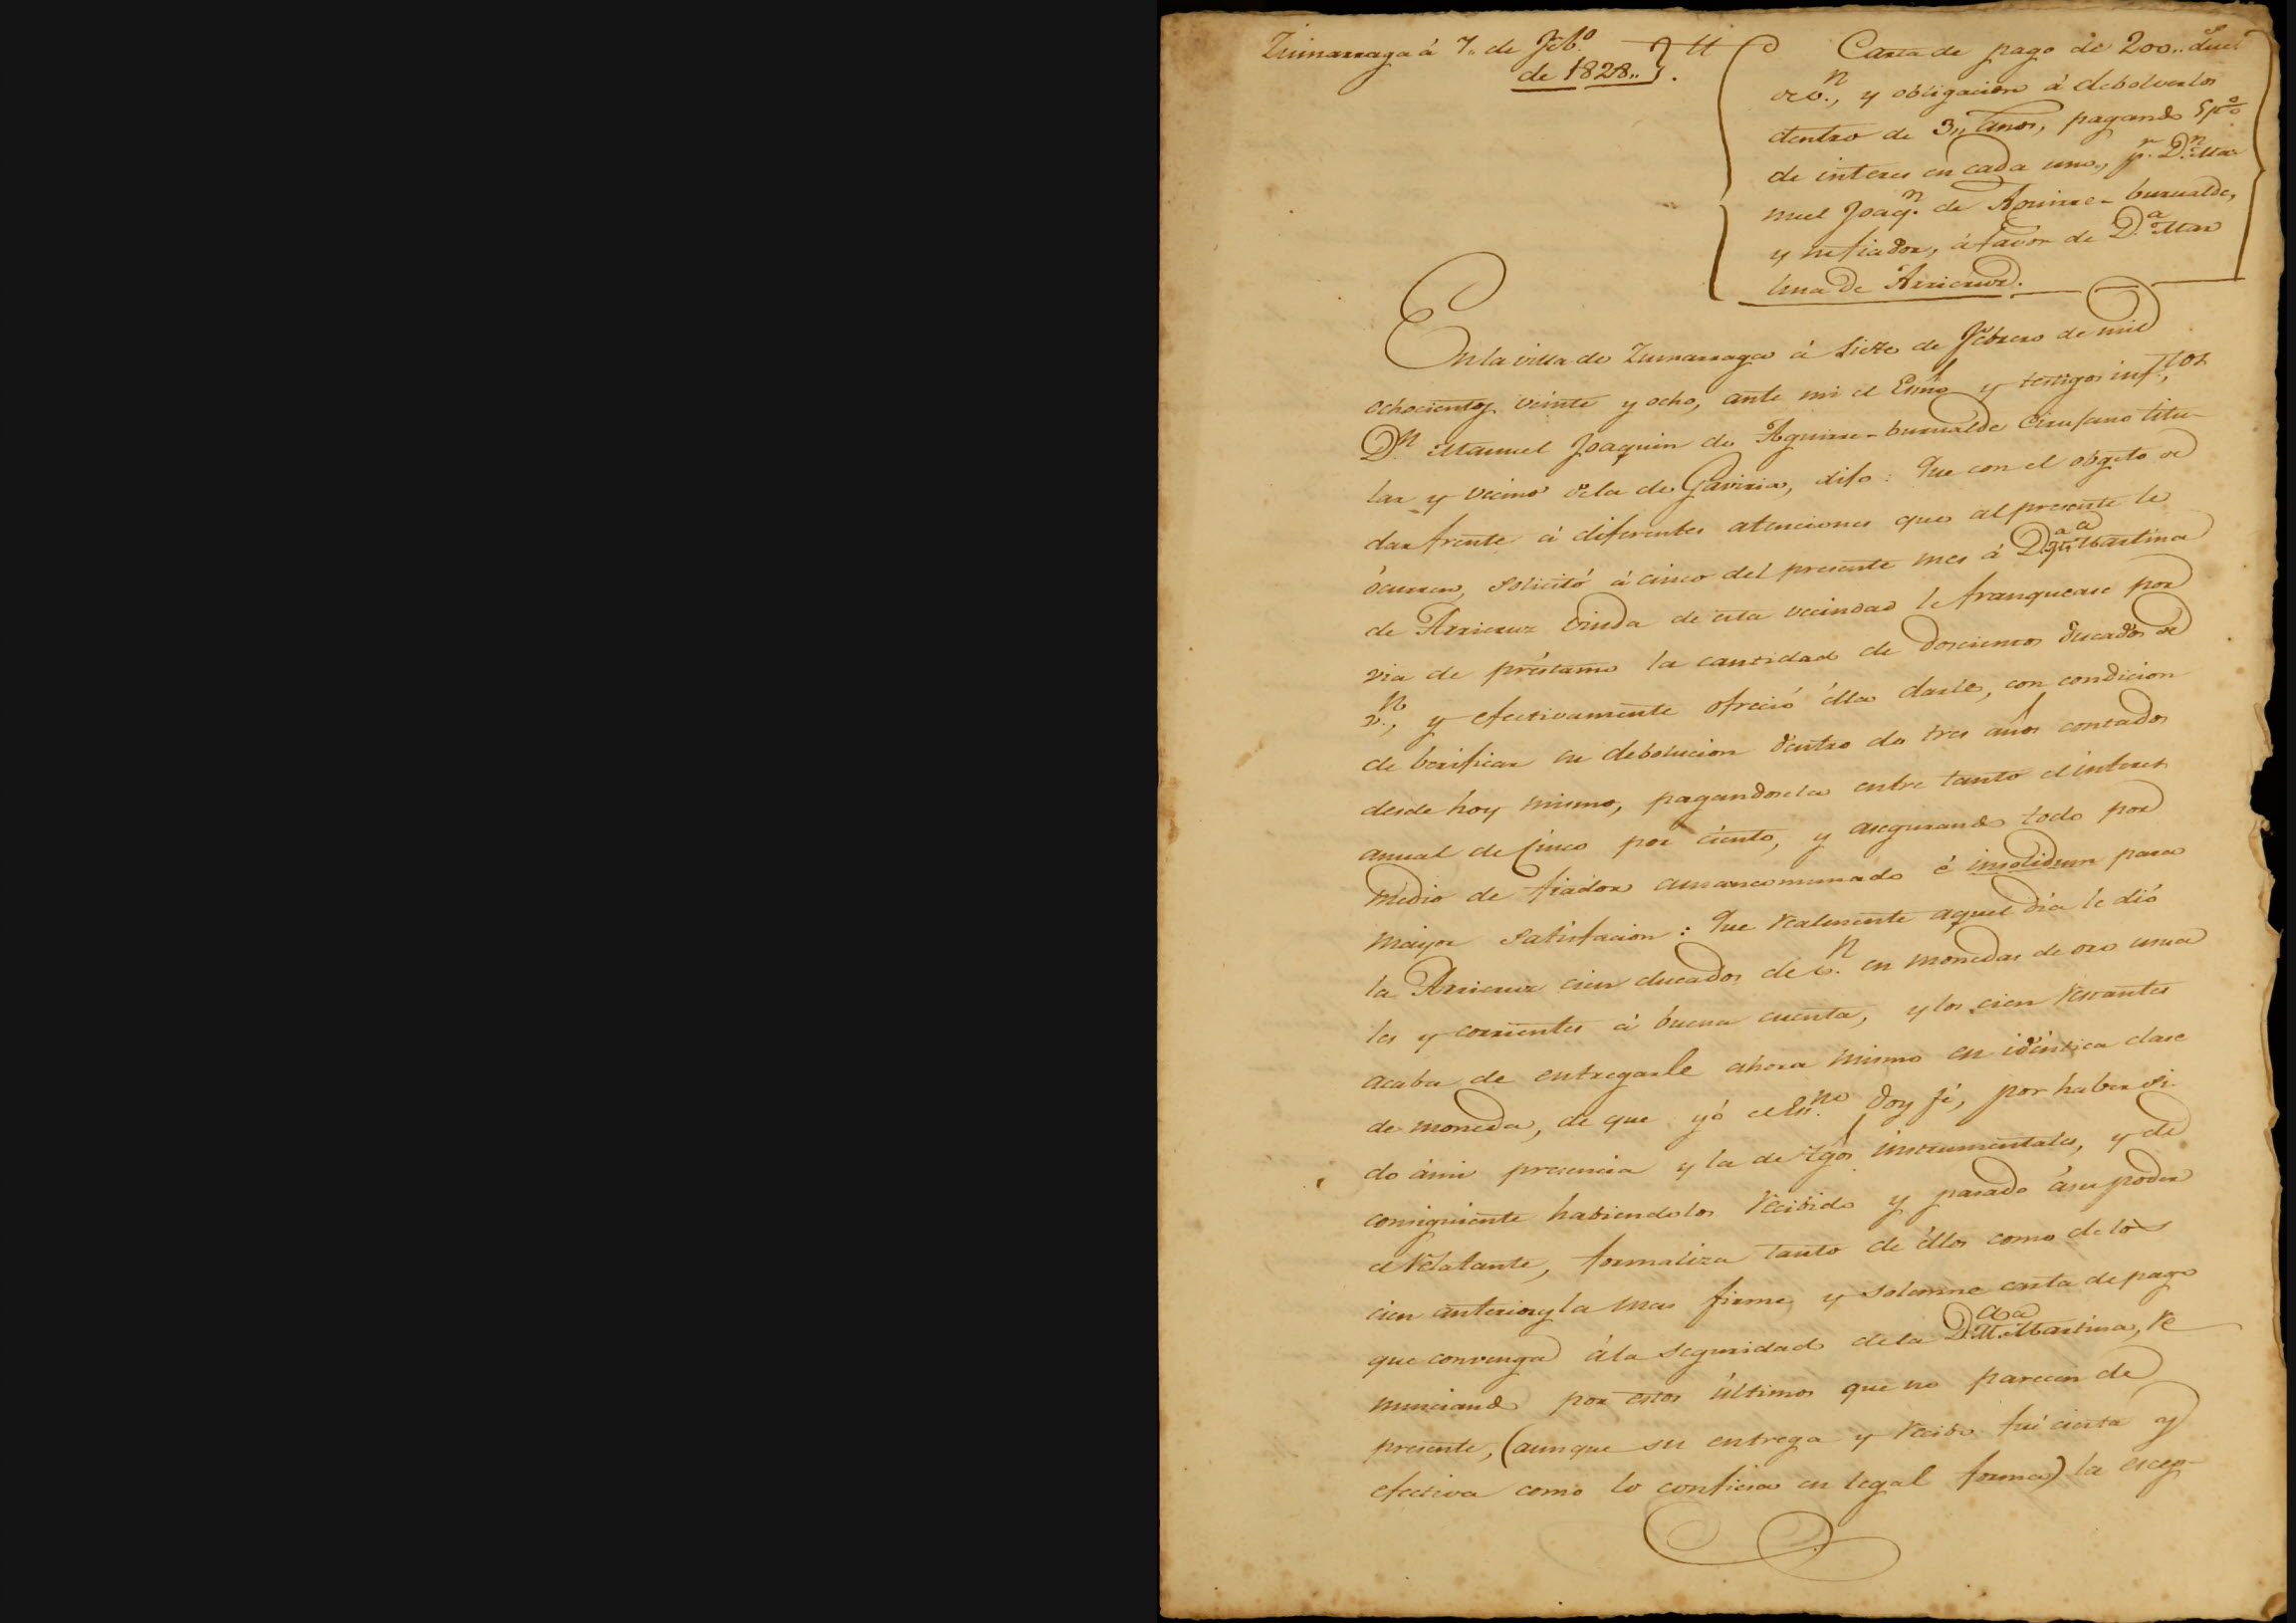 Zumarraga á 7,, de Feb.º
de 1828,,
Carta de pago de 200,, duc.s
de v.n, y obligacion á debolverlos
dentro de 3,, años, pagando 5 p%
de interes en cada uno, p.r D.n Ma
nuel Joaq.n de Aguirre-burualde,
y su fiador, á favor de D.a Mar
tina de Arricruz.
En la villa de Zumarraga á siete de Febrero de mil
ochocientos veinte y ocho, ante mi el Esnõ y testigos infr̃tos,
D.n Manuel Joaquin de Aguirre-burualde Cirujano titu-
lar y vecino de la de Gaviria, dijo: Que con el obgeto de
dar frente á diferentes atenciones que al presente le
ócurren, solicitó á cinco del presente mes á D.a M.a Martina
de Arricruz viuda de esta vecindad le franquease por
via de préstamo la cantidad de doscientos ducados de
v.n, y efectivamente ofreció élla darle, con condicion
de berificar su debolucion dentro de tres años contados
desde hoy mismo, pagandosela entre tanto el interes
anual de Cinco por ciento, y asegurando todo por
medio de fiador amancomunado é insolidum para
mayor satisfacion: Que realmente aquel dia le dió
la Arricruz cien ducados de v.n en monedas de oro usua
les y corrientes á buena cuenta, y los cien restantes
acaba de entregarle ahora mismo en idéntica clase
de moneda, de que yó el Es.no doy fé, por haber si
do ámi presencia y la de tgõs instrumentales, y de
consiguiente habiendolos recibido y pasado ásu poder
el relatante, formaliza tanto de éllos como de los
cien anteriores la mas firme y solemne carta de pago
que convenga á la seguridad de la D.a M.a Martina, re
nunciando por estos últimos que no parecen de
presente, (aunque su entrega y recibo fué cierta y
efectiva como lo confiesa en legal forma) la escep-